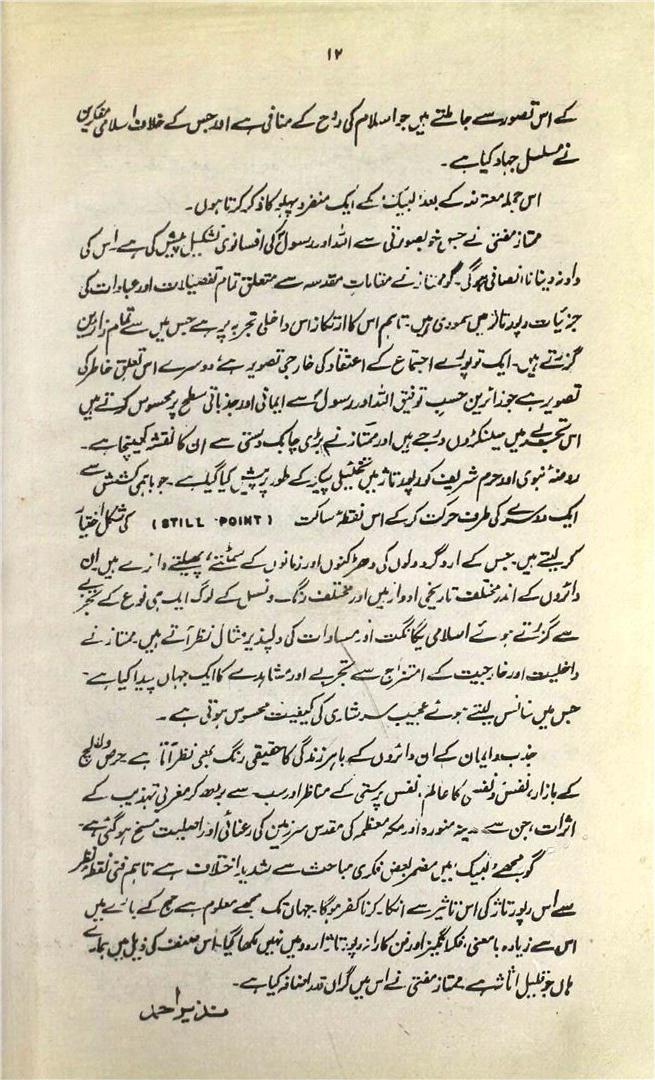 ۱۲
کے اس تصور سے جا ملتے ہیں جو اسلام کی روح کے منافی ہے اور جس کے خلاف اسلامی مفکرین
نے مسلسل جہاد کیا ہے۔
اس جملہ معترضہ کے بعد 'لبیک' کے ایک منفرد پہلو کا ذکر کرتا ہوں۔
ممتاز مفتی نے جس خوبصورتی سے اللہ اور رسولؐ کی افسانوی تشکیل پیش کی ہے اس کی
داد نہ دینا نا انصافی ہوگی۔ گو ممتاز نے مقامات مقدسہ سے متعلق تمام تفصیلات اور عبادات کی
جزئیات رپورتاژ میں سمو دی ہیں۔ تاہم اس کا ارتکاز اس داخلی تجربہ پر ہے جس میں سے تمام زائرین
گزرتے ہیں۔ ایک تو پورے اجتماع کے اعتقاد کی خارجی تصویر ہے، دوسرے اس تعلق خاطر کی
تصویر ہے جو زائرین حسب توفیق اللہ اور رسولؐ سے ایمانی اور جذباتی سطح پر محسوس کرتے ہیں
اس تجربے میں سینکڑوں درجے ہیں اور ممتاز نے بڑی چابک دستی سے ان کا نقشہ کھینچا ہے۔
روضۂ نبوی اور حرم شریف کو رپورتاژ میں تخئیلی پیکر کے طور پر پیش کیا گیا ہے۔ جو باہمی کشش سے
ایک دوسرے کی طرف حرکت کر کے اس نقطۂ ساکت (STILL POINT) کی شکل اختیار
کر لیتے ہیں۔ جس کے ارد گرد دلوں کی دھڑکنوں اور زمانوں کے سمٹتے، پھیلتے دائرے ہیں ان
دائروں کے اندر مختلف تاریخی ادوار میں اور مختلف رنگ و نسل کے لوگ ایک ہی نوع کے تجربے
سے گزرتے ہوئے اسلامی یگانگت اور مساوات کی دلپذیر مثال نظر آتے ہیں۔ ممتاز نے
داخلیت اور خارجیت کے امتزاج سے تجربے اور مشاہدے کا ایک جہاں پیدا کیا ہے۔
جس میں سانس لیتے ہوئے عجیب سرشاری کی کیفیت محسوس ہوتی ہے۔
جذب و ایمان کے ان دائروں کے باہر زندگی کا حقیقی رنگ بھی نظر آتا ہے حرص و لالچ
کے بازار، نفس و نفسی کا عالم، نفس پرستی کے مناظر اور سب سے بڑھ کر مغربی تہذیب کے
اثرات، جن سے مدینہ منورہ اور مکہ معظمہ کی مقدس سرزمین کی رعنائی اور اصلیت مسخ ہو گئی ہے۔
گو مجھے 'لبیک' میں مضمر بعض فکری مباحث سے شدید اختلاف ہے تاہم فنی نقطۂ نظر
سے اس رپورتاژ کی اس تاثیر سے انکار کرنا کفر ہوگا۔ جہاں تک مجھے معلوم ہے حج کے بارے میں
اس سے زیادہ بامعنی، فکر انگیز اور فن کارانہ رپورتاژ اردو میں نہیں لکھا گیا۔ اس صنف کی ذیل میں ہمارے
ہاں جو قلیل اثاثہ ہے۔ ممتاز مفتی نے اس میں گراں قدر اضافہ کیا ہے۔
نذیر احمد